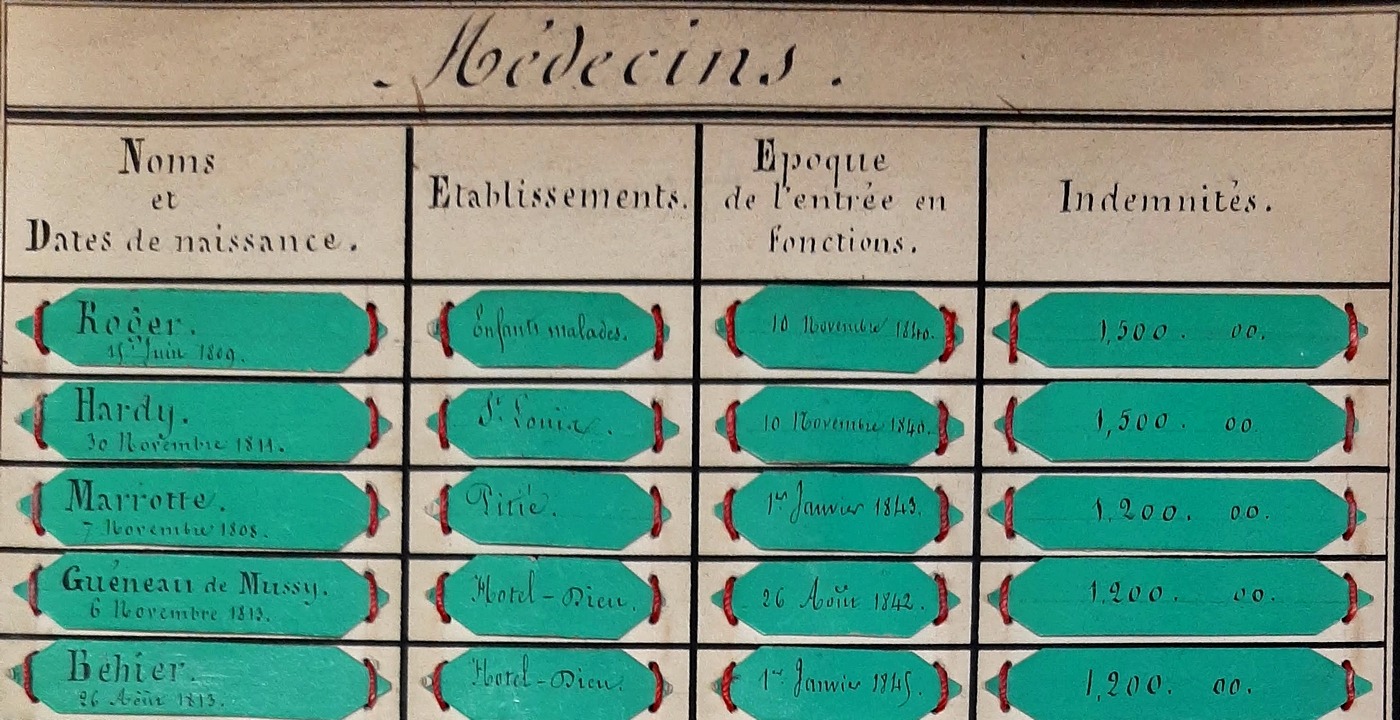 Médecins.
Noms
et
Dates de naissance.
Etablissements.
Epoque
de l'entrée en
fonctions.
Indemnités.
Roger.
15 Juin 1809.
Enfants malades.
10 Novembre 1840.
1,500. 00.
Hardy.
30 Novembre 1811.
St. Louis.
10 Novembre 1840.
1,500. 00
Marrotte.
7 Novembre 1808.
Pitié.
1er Janvier 1843.
1,200. 00.
Guéneau de Mussy.
6 Novembre 1813.
Hotel-Dieu.
26 Août 1842.
1,200. 00.
Béhier.
26 Août 1813.
Hotel-Dieu.
1er Janvier 1845.
1,200. 00.